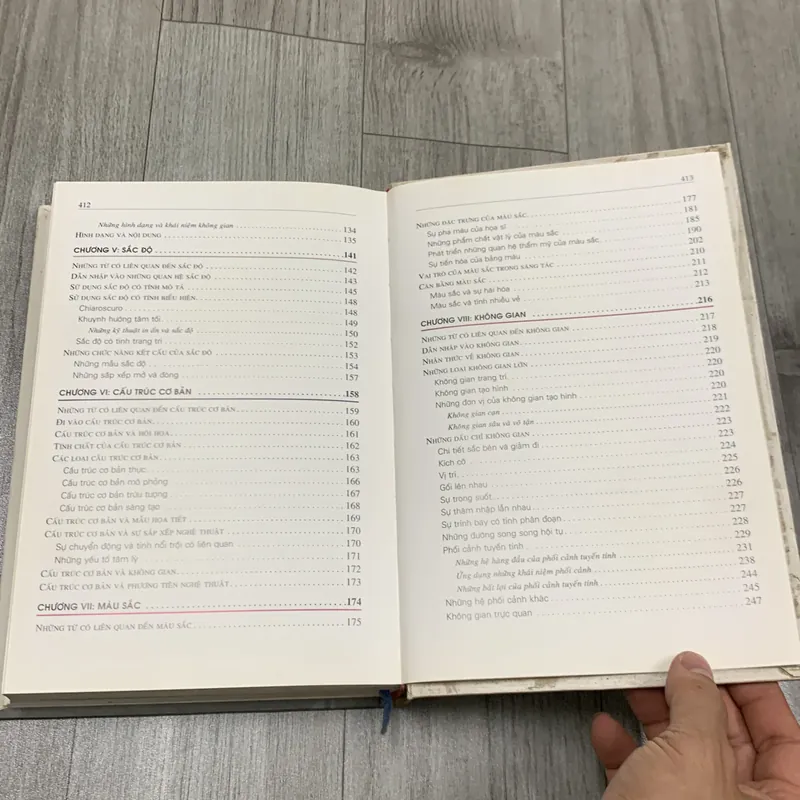 412
Những hình dạng và khái niệm không gian 134
HÌNH DẠNG VÀ NỘI DUNG 135
CHƯƠNG V: SẮC ĐỘ 141
NHỮNG TỪ CÓ LIÊN QUAN ĐẾN SẮC ĐỘ 142
DẪN NHẬP VÀO NHỮNG QUAN HỆ SẮC ĐỘ 143
SỬ DỤNG SẮC ĐỘ CÓ TÍNH MÔ TẢ 145
SỬ DỤNG SẮC ĐỘ CÓ TÍNH BIỂU HIỆN 148
Chiaroscuro 148
Khuynh hướng tăm tối 149
Những kỹ thuật in ấn và sắc độ 150
Sắc độ có tính trang trí 152
NHỮNG CHỨC NĂNG KẾT CẤU CỦA SẮC ĐỘ 153
Những mẫu sắc độ 154
Những sắp xếp mở và đóng 157
CHƯƠNG VI: CẤU TRÚC CƠ BẢN 158
NHỮNG TỪ CÓ LIÊN QUAN ĐẾN CẤU TRÚC CƠ BẢN 159
ĐI VÀO CẤU TRÚC CƠ BẢN 160
CẤU TRÚC CƠ BẢN VÀ HỘI HỌA 161
TÍNH CHẤT CỦA CẤU TRÚC CƠ BẢN 162
CÁC LOẠI CẤU TRÚC CƠ BẢN 163
Cấu trúc cơ bản thực 163
Cấu trúc cơ bản mô phỏng 166
Cấu trúc cơ bản trừu tượng 167
Cấu trúc cơ bản sáng tạo 168
CẤU TRÚC CƠ BẢN VÀ MẪU HỌA TIẾT 169
CẤU TRÚC CƠ BẢN VÀ SỰ SẮP XẾP NGHỆ THUẬT 170
Sự chuyển động và tính nổi trội có liên quan 170
Những yếu tố tâm lý 171
CẤU TRÚC CƠ BẢN VÀ KHÔNG GIAN 172
CẤU TRÚC CƠ BẢN VÀ PHƯƠNG TIỆN NGHỆ THUẬT 173
CHƯƠNG VII: MÀU SẮC 174
NHỮNG TỪ CÓ LIÊN QUAN ĐẾN MÀU SẮC 175
413
NHỮNG ĐẶC TRƯNG CỦA MÀU SẮC 177
Sự pha màu của họa sĩ 181
Những phẩm chất vật lý của màu sắc 185
Phát triển những quan hệ thẩm mỹ của màu sắc 190
Sự tiến hóa của bảng màu 202
VAI TRÒ CỦA MÀU SẮC TRONG SÁNG TÁC 210
CÂN BẰNG MÀU SẮC 211
Màu sắc và sự hài hòa 212
Màu sắc và tính nhiều vẻ 213
CHƯƠNG VIII: KHÔNG GIAN 216
NHỮNG TỪ CÓ LIÊN QUAN ĐẾN KHÔNG GIAN 217
DẪN NHẬP VÀO KHÔNG GIAN 218
NHẬN THỨC VỀ KHÔNG GIAN 219
NHỮNG LOẠI KHÔNG GIAN LỚN 220
Không gian trang trí 220
Không gian tạo hình 220
Những đơn vị của không gian tạo hình 221
Không gian cạn 222
Không gian sâu và vô tận 223
NHỮNG DẤU CHỈ KHÔNG GIAN 223
Chi tiết sắc bén và giảm đi 224
Kích cỡ 225
Vị trí 226
Gối lên nhau 226
Sự trong suốt 227
Sự thâm nhập lẫn nhau 227
Sự trình bày có tính phân đoạn 228
Những đường song song hội tụ 229
Phối cảnh tuyến tính 231
Những hệ hàng đầu của phối cảnh tuyến tính 238
Ứng dụng những khái niệm phối cảnh 244
Những bất lợi của phối cảnh tuyến tính 245
Những hệ phối cảnh khác 247
Không gian trực quan